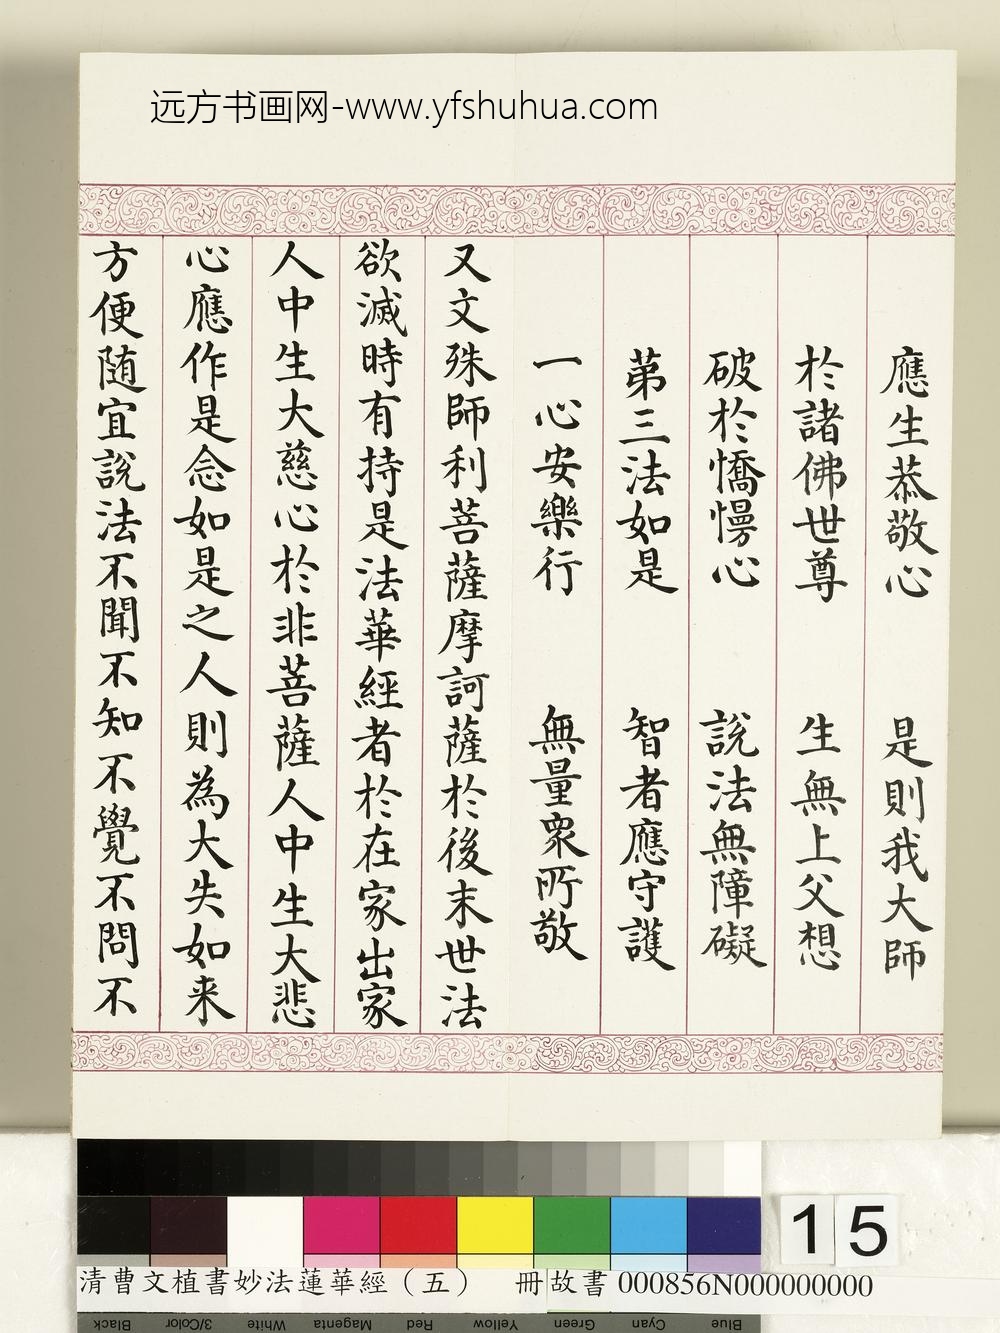 远方书画网-www.yfshuhua.com
應生恭敬心 是則我大師
於諸佛世尊 生無上父想
破於憍慢心 說法無障礙
第三法如是 智者應守護
一心安樂行 無量眾所敬
又文殊師利菩薩摩訶薩於後末世法
欲滅時有持是法華經者於在家出家
人中生大慈心於非菩薩人中生大悲
心應作是念如是之人則為大失如来
方便随宜說法不聞不知不覺不問不
15
清曹文植書妙法蓮華經（五） 冊 故書 000856N000000000
Black 3/Color White Magenta Red Yellow Green Cyan Blue